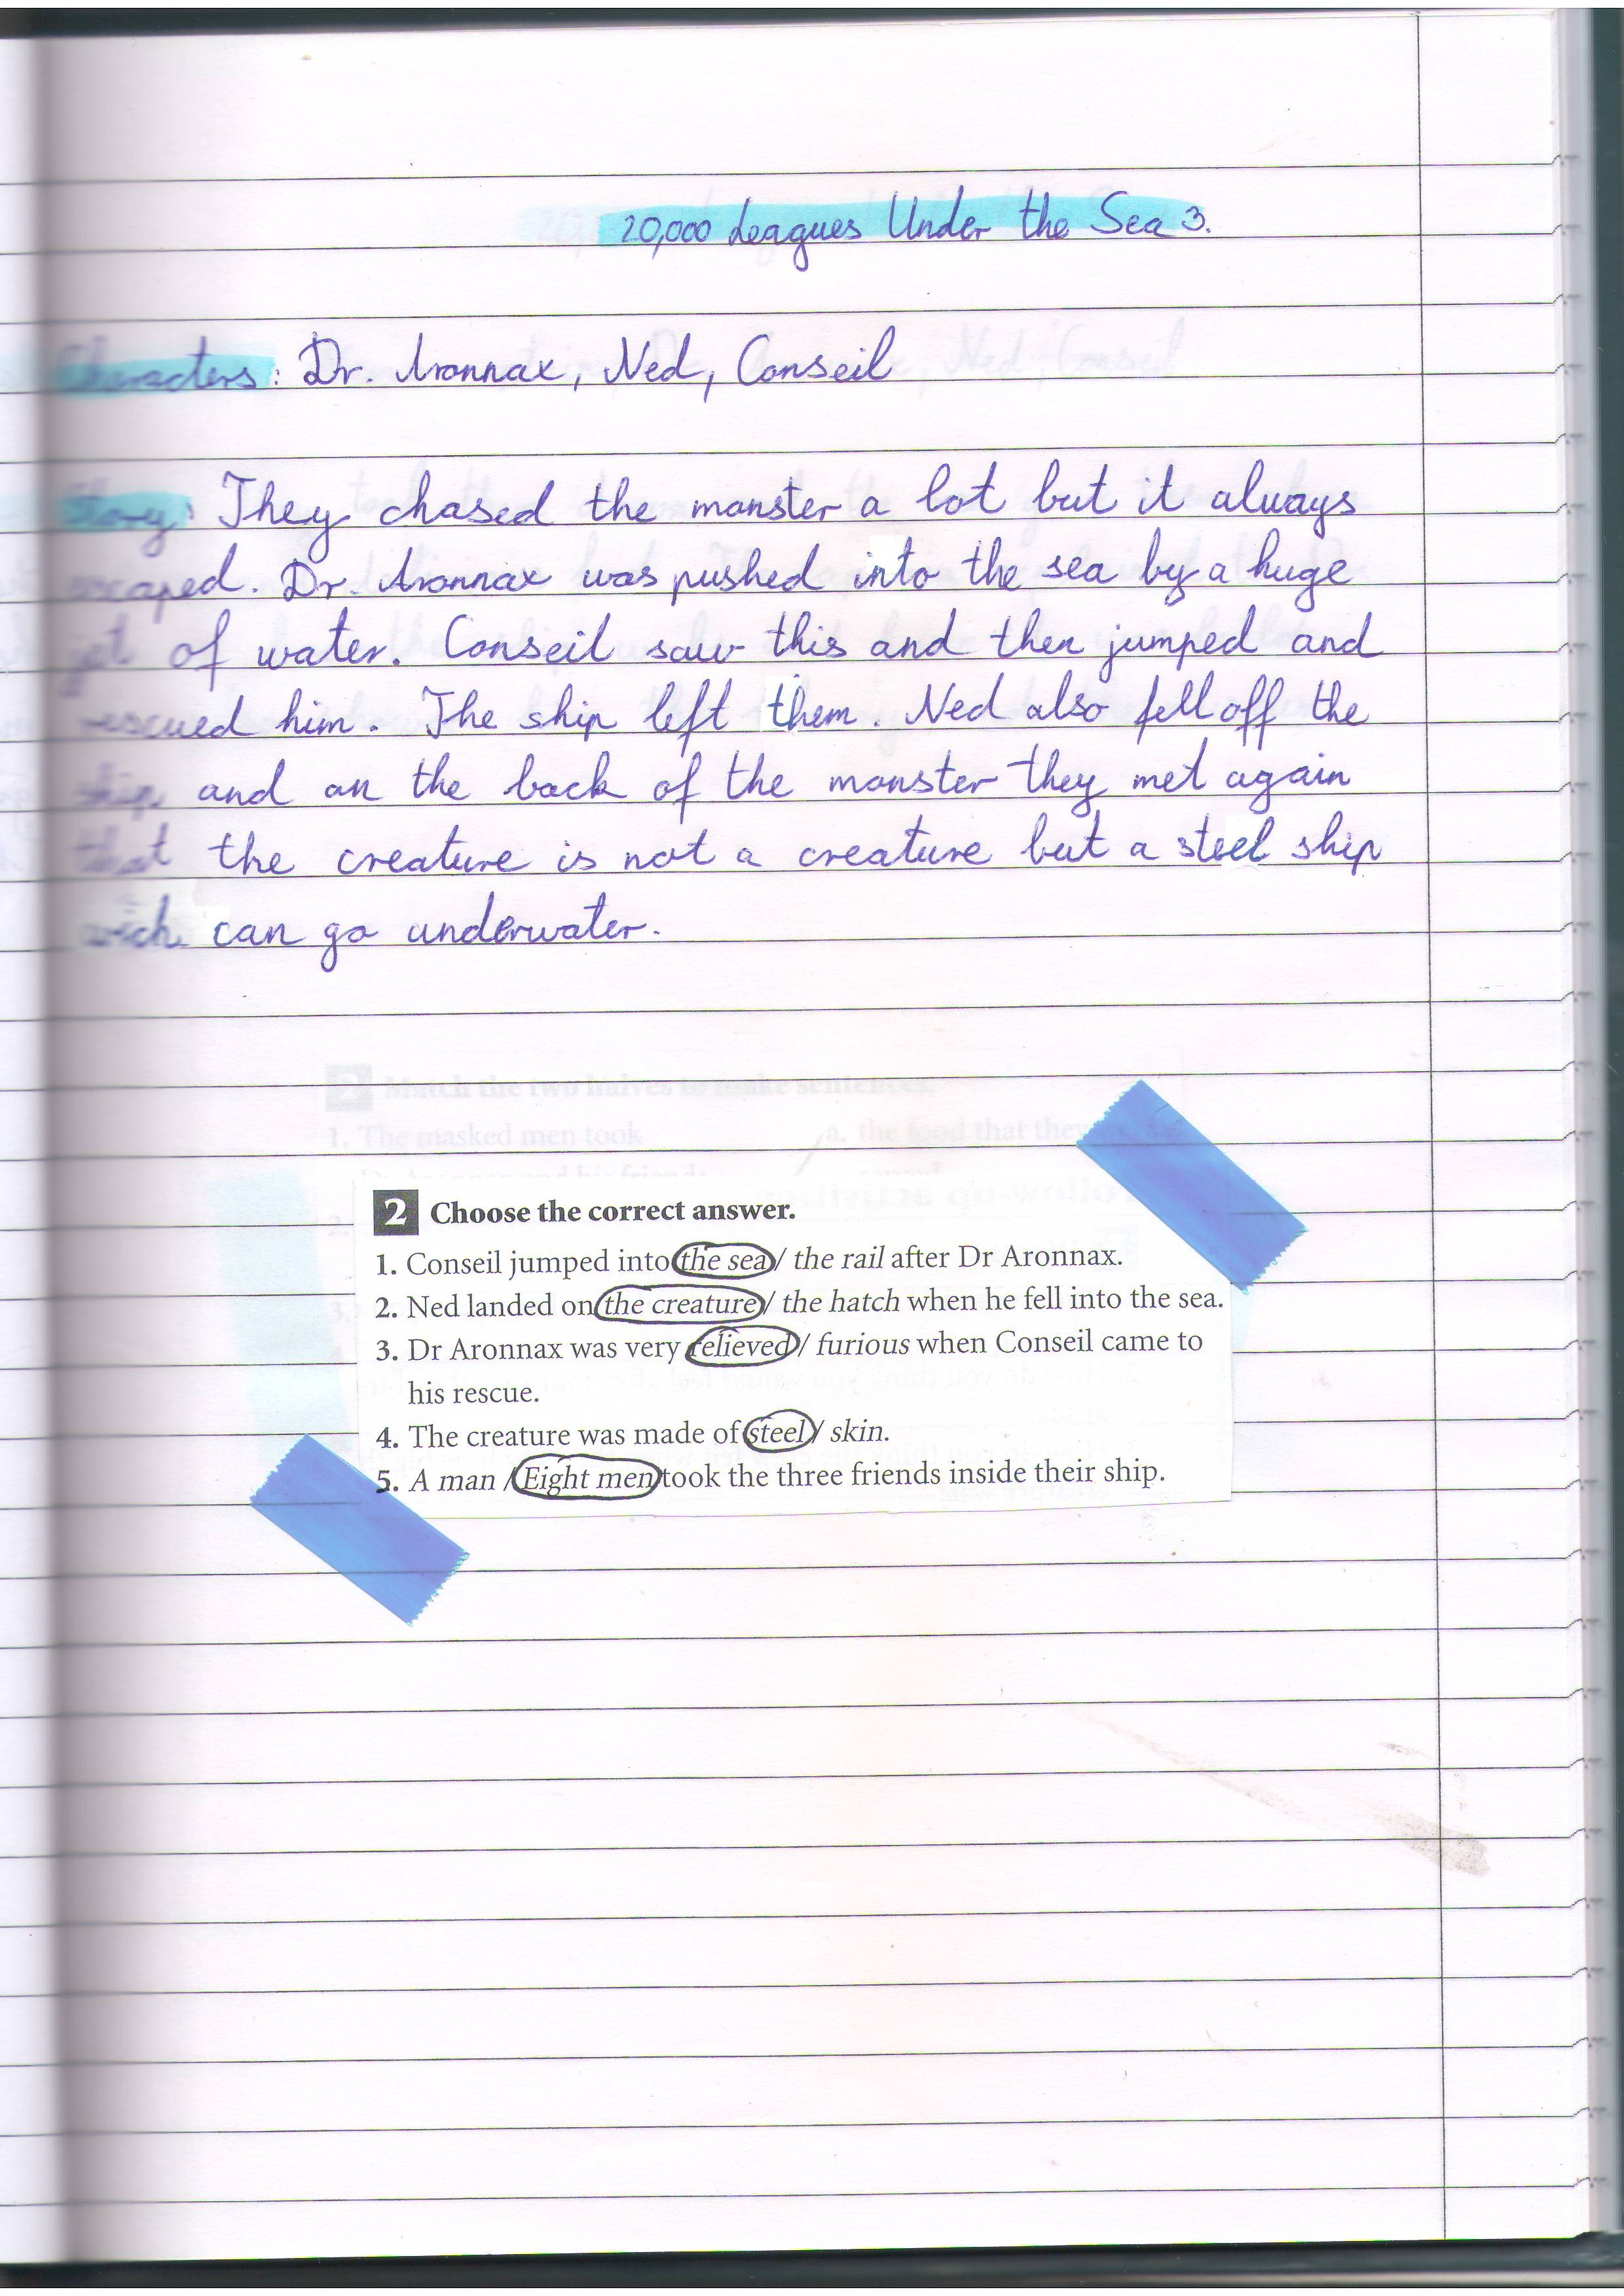 20,000 Leagues Under the Sea 3.
Characters: Dr. Aronnax, Ned, Conseil
Story: They chased the monster a lot but it always
escaped. Dr. Aronnax was pushed into the sea by a huge
jet of water. Conseil saw this and then jumped and
rescued him. The ship left them. Ned also fell off the
ship and on the back of the monster they met again
that the creature is not a creature but a steel ship
wich can go underwater.
2 Match the two halves to make sentences.
1. The masked men took a. the food that they
2 Choose the correct answer.
1. Conseil jumped into the sea / the rail after Dr Aronnax.
2. Ned landed on the creature / the hatch when he fell into the sea.
3. Dr Aronnax was very relieved / furious when Conseil came to
his rescue.
4. The creature was made of steel / skin.
5. A man / Eight men took the three friends inside their ship.